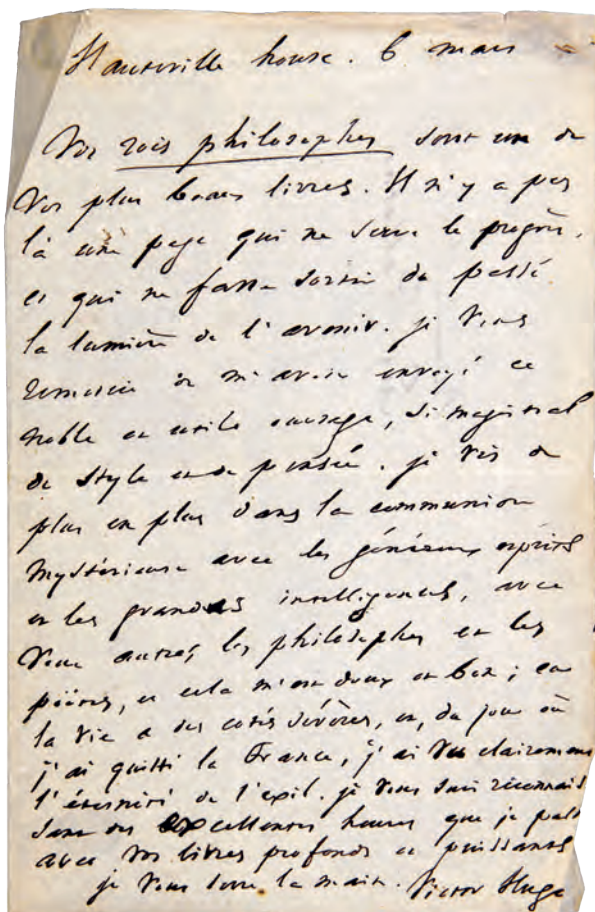 Hauteville house. 6 mars
Vos rois philosophes sont un de
vos plus beaux livres. Il n'y a pas
là une page qui ne serve le progrès,
et qui ne fasse sortir du passé
la lumière de l'avenir. je vous
remercie de m'avoir envoyé ce
noble et utile ouvrage, si magistral
de style et de pensée. je vis de
plus en plus dans la communion
mystérieuse avec les généreux esprits
et les grandes intelligences, avec
vous autres, les philosophes et les
poëtes, et cela m'est doux et bon ; car
la vie a des cotés sévères, et, du jour où
j'ai quitté la France, j'ai vu clairement
l'éternité de l'exil. je vous suis reconnais
sant des excellentes heures que je passe
avec vos livres profonds et puissants
je vous serre la main. Victor Hugo